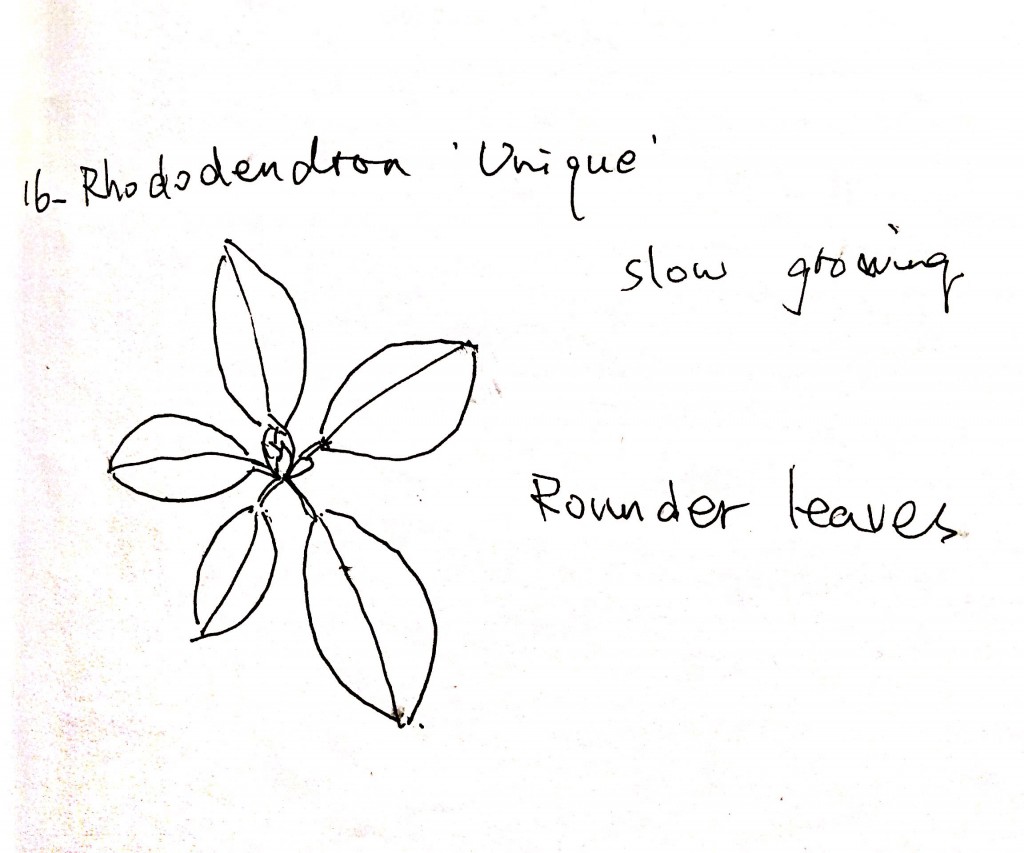 16- Rhododendron 'Unique'
slow growing
Rounder leaves